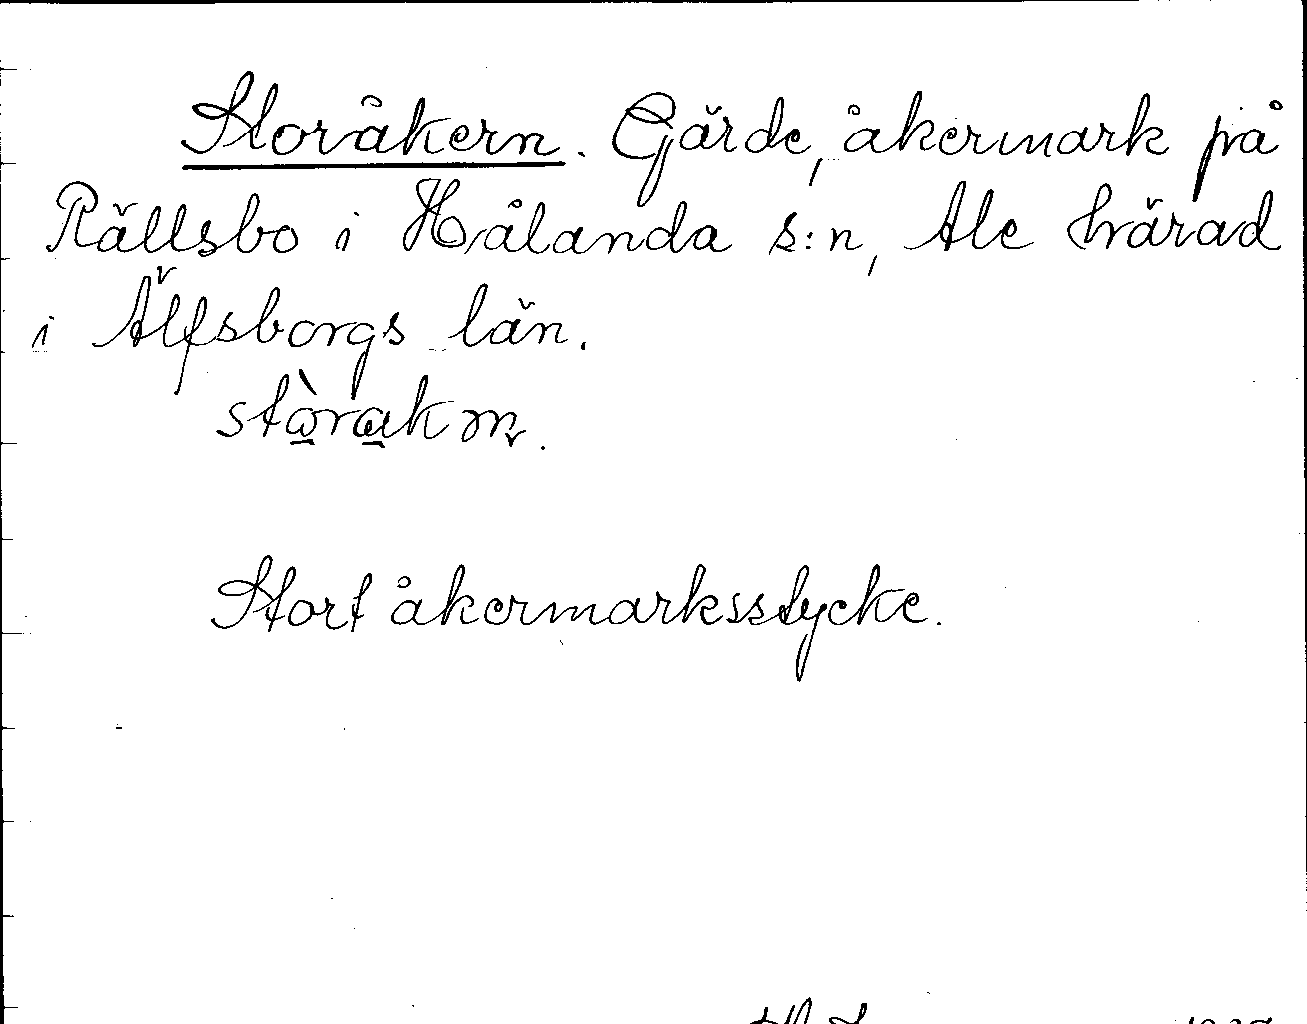 Storåkern. Gärde, åkermark på
Rällsbo i Hålanda s:n, Ale härad
i Älfsborgs län.
Stort åkermarksstycke.